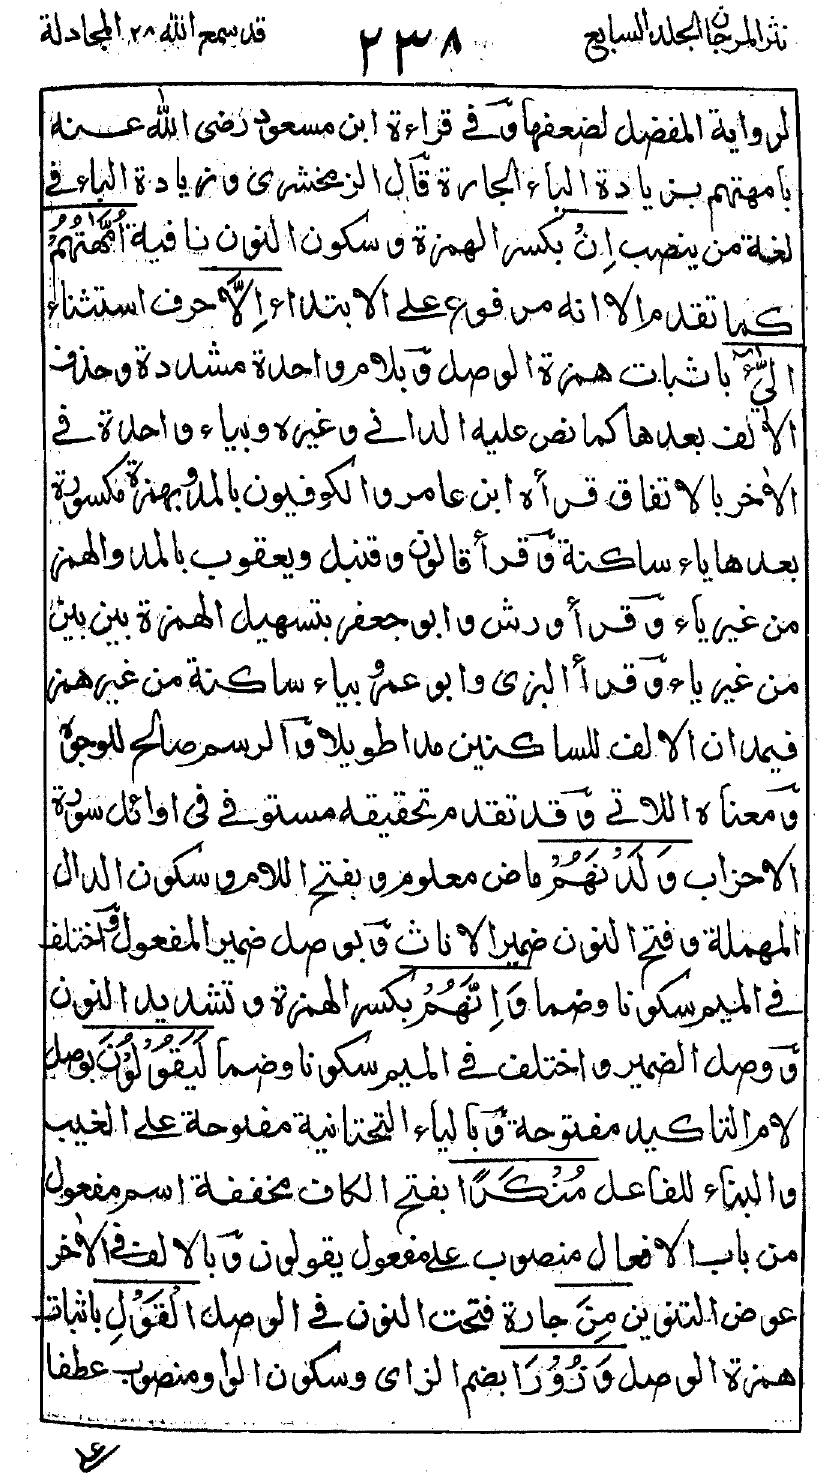 نثر المرجان الجلد السابع
٢٣٨
قد سمع الله ٢٨ المجادلة
لرواية المفضل لضعفها وَفي قراءة ابن مسعود رضى الله عنه
بأمهتهم بزيادة الباء الجارة قَال الزمخشرى وزيادة الباء في
لغة من ينصب اِنْ بكسر الهمزة وسكون النون نافية اُمَّهٰتُهُمْ
كما تقدم الا انه مرفوع على الابتداء اِلَّا حرف استثناء
الّٰٓـِٔيْ باثبات همزة الوصل وَبلام واحدة مشددة وحذف
الألف بعدها كما نص عليه الدانى وغيره وبياء واحدة في
الأخر بالاتفاق قرأه ابن عامر والكوفيون بالمد وبهمزة مكسورة
بعدها ياء ساكنة وَقرأ قالون وقنبل ويعقوب بالمد والهمز
من غير ياء وَقرأ ورش وابو جعفر بتسهيل الهمزة بين بين
من غير ياء وَقرأ البزى وابو عمرو بياء ساكنة من غير همز
فيمدان الالف للساكنين مدا طويلا وَالرسم صالح للوجوه
وَمعناه اللاتي وَقد تقدم تحقيقه مستوفى في اوائل سورة
الاحزاب وَلَدْنَهُمْ ماض معلوم وبفتح اللام وسكون الدال
المهملة وفتح النون ضمير الاناث وَبوصل ضمير المفعول وَاختلف
في الميم سكونا وضما وَاِنَّهُمْ بكسر الهمزة وتشديد النون
وَوصل الضمير واختلف في الميم سكونا وضما لَيَقُوْلُوْنَ بوصل
لام التاكيد مفتوحة وَبالياء التحتانية مفتوحة على الغيب
والبناء للفاعل مُنْكَرًا بفتح الكاف مخففة اسم مفعول
من باب الافعال منصوب على مفعول يقولون وَبالالف في الأخر
عوض التنوين مِنَ جارة فتحت النون في الوصل الْقَوْلِ باثبات
همزة الوصل وَزُوْرًا بضم الزاى وسكون الواو ومنصوب عطفا